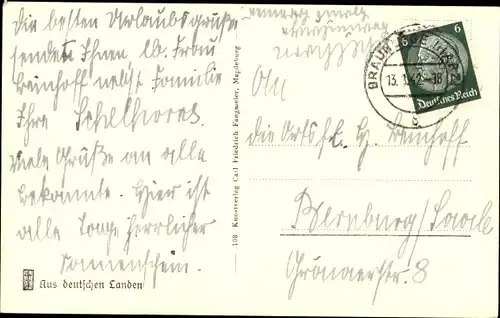 Die besten Urlaubsgrüße
senden Ihnen lb. Frau
Beinhoff nebst Familie
Ihre
Viele Grüße an alle
Bekannte. Hier ist
alle Tage herrlicher
Sonnenschein.
Aus deutschen Landen
108 Kunstverlag Carl Friedrich Fangmeier, Magdeburg
6 6
Deutsches Reich
BRAUN
13. 42 - 18
An
die Ortsf H. Beinhoff
Bernburg/Saale
Grönaerstr. 8